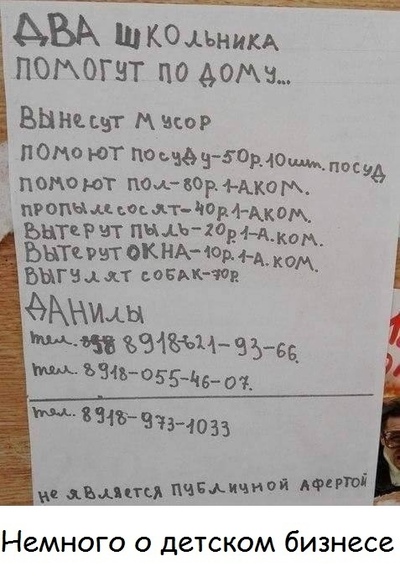 ДВА ШКОЛЬНИКА
ПОМОГУТ ПО ДОМУ...
ВЫНЕСУТ МУСОР
ПОМОЮТ ПОСУДУ-50р.10шт. ПОСУД
ПОМОЮТ ПОЛ-80р.1-АКОМ.
ПРОПЫЛЕСОСЯТ-40р.1-АКОМ.
ВЫТЕРУТ ПЫЛЬ-20р.1-А.КОМ.
ВЫТЕРУТ ОКНА-10р.1-А.КОМ.
ВЫГУЛЯТ СОБАК-70р.
ДАНИЛЫ
тел. 8918-621-93-66.
тел. 8918-055-46-07.
тел. 8918-973-1033
НЕ ЯВЛЯЕТСЯ ПУБЛИЧНОЙ АФЕРТОЙ
Немного о детском бизнесе